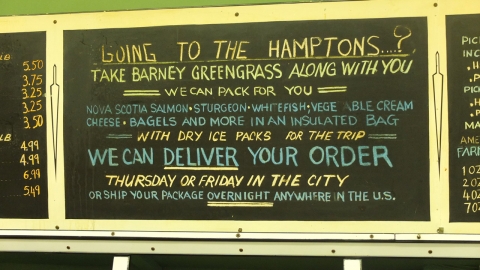 LB
5.50
3.75
3.25
3.25
3.50
LB.
4.99
4.99
6.99
5.49
GOING TO THE HAMPTONS....?
TAKE BARNEY GREENGRASS ALONG WITH YOU
WE CAN PACK FOR YOU
NOVA SCOTIA SALMON • STURGEON • WHITEFISH • VEGE ABLE CREAM
CHEESE • BAGELS AND MORE IN AN INSULATED BAG
WITH DRY ICE PACKS FOR THE TRIP
WE CAN DELIVER YOUR ORDER
THURSDAY OR FRIDAY IN THE CITY
OR SHIP YOUR PACKAGE OVERNIGHT ANYWHERE IN THE U.S.
PIC
IN
PIC
MA
AME
FARM
1 OZ
2 OZ
4 OZ
7 OZ